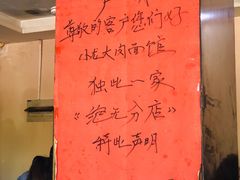 尊敬的客户您们好
小龙大肉面馆
独此一家
"绝无分店"
特此声明